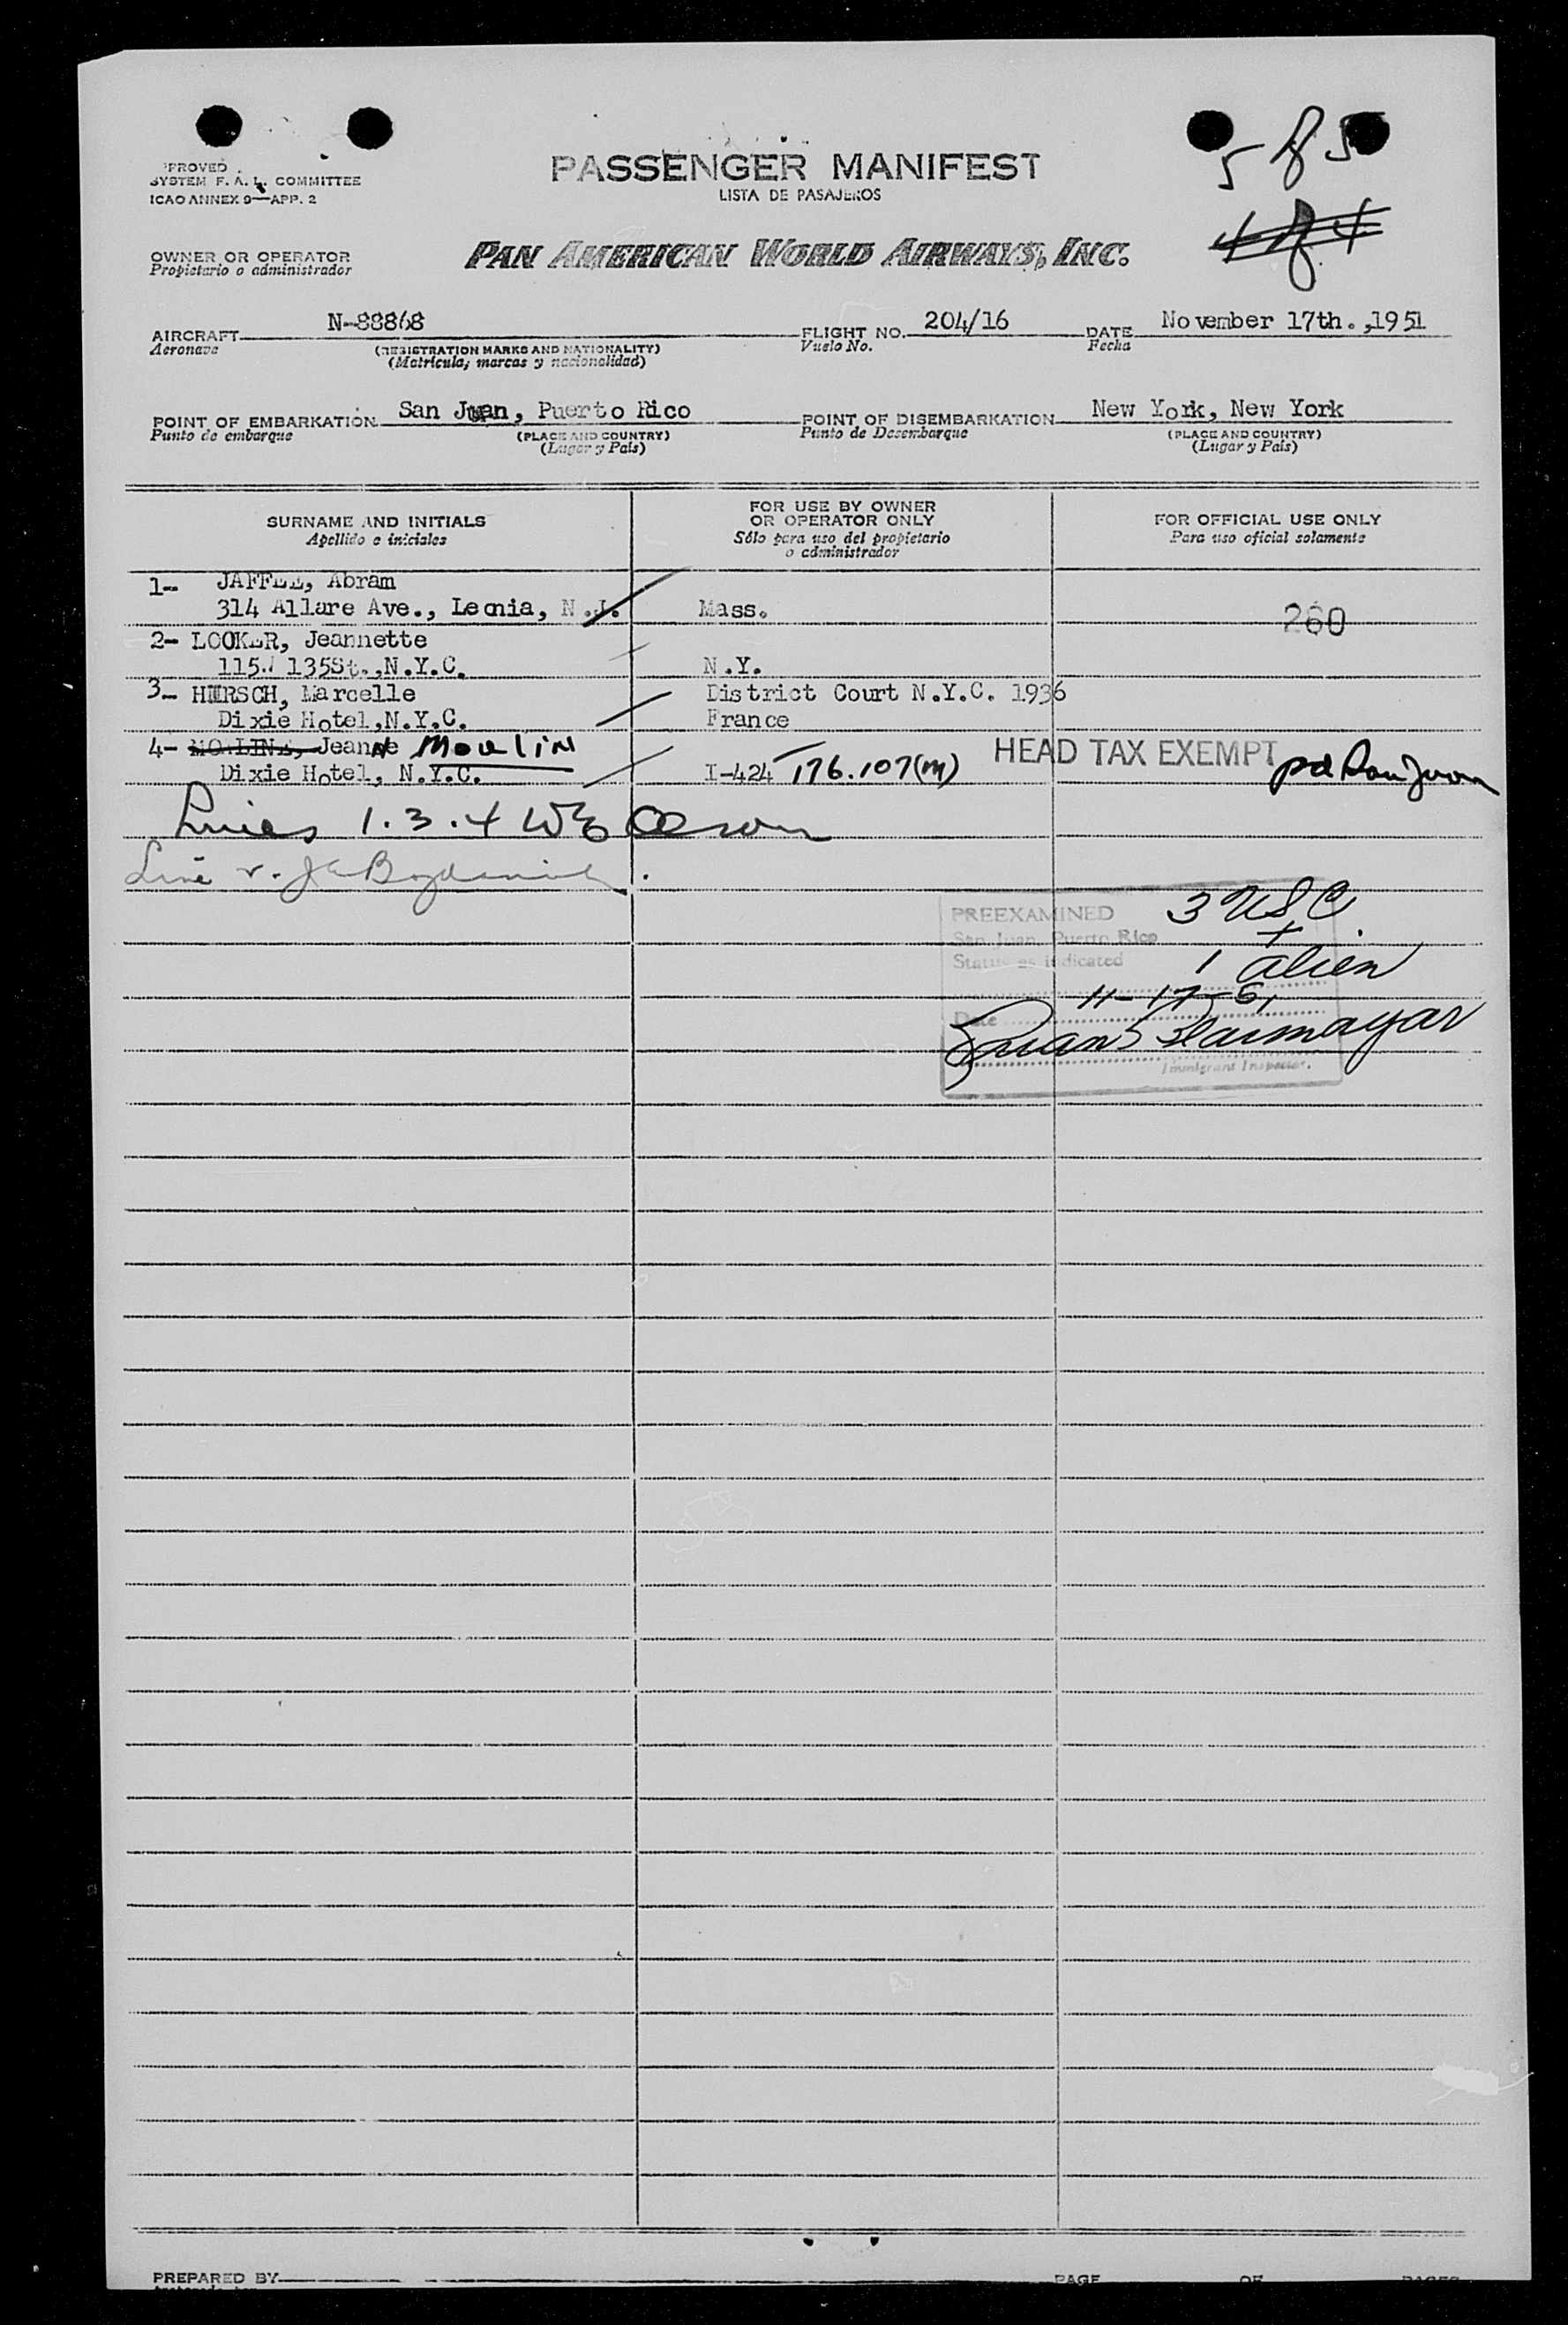 5 of 5
PROVED
SYSTEM F. A. L. COMMITTEE
ICAO ANNEX 9—APP. 2
PASSENGER MANIFEST
LISTA DE PASAJEROS
4 of 4
OWNER OR OPERATOR
Propietario o administrador
PAN AMERICAN WORLD AIRWAYS, INC.
AIRCRAFT N-88868 FLIGHT NO. 204/16 DATE November 17th.,1951
Aeronave (REGISTRATION MARKS AND NATIONALITY) Vuelo No. Fecha
(Matrícula, marcas y nacionalidad)
POINT OF EMBARKATION San Juan, Puerto Rico POINT OF DISEMBARKATION New York, New York
Punto de embarque (PLACE AND COUNTRY) Punto de Desembarque (PLACE AND COUNTRY)
(Lugar y País) (Lugar y País)
SURNAME AND INITIALS FOR USE BY OWNER OR OPERATOR ONLY FOR OFFICIAL USE ONLY
Apellido e iniciales Sólo para uso del propietario o administrador Para uso oficial solamente
1- JAFFEE, Abram
314 Allare Ave., Leonia, N.J. Mass. 260
2- LOOKER, Jeannette
115 135St.,N.Y.C. N.Y.
3- HIRSCH, Marcelle District Court N.Y.C. 1936
Dixie Hotel,N.Y.C. France
4- Jeanne Moulin HEAD TAX EXEMPT pd San Juan
Dixie Hotel, N.Y.C. I-424 176.107(M)
Lines 1.3.4
Line
PREEXAMINED 3 USC
San Juan, Puerto Rico +
Status as indicated 1 alien
Date 11-17-51
Immigrant Inspector.
PREPARED BY PAGE OF PAGES